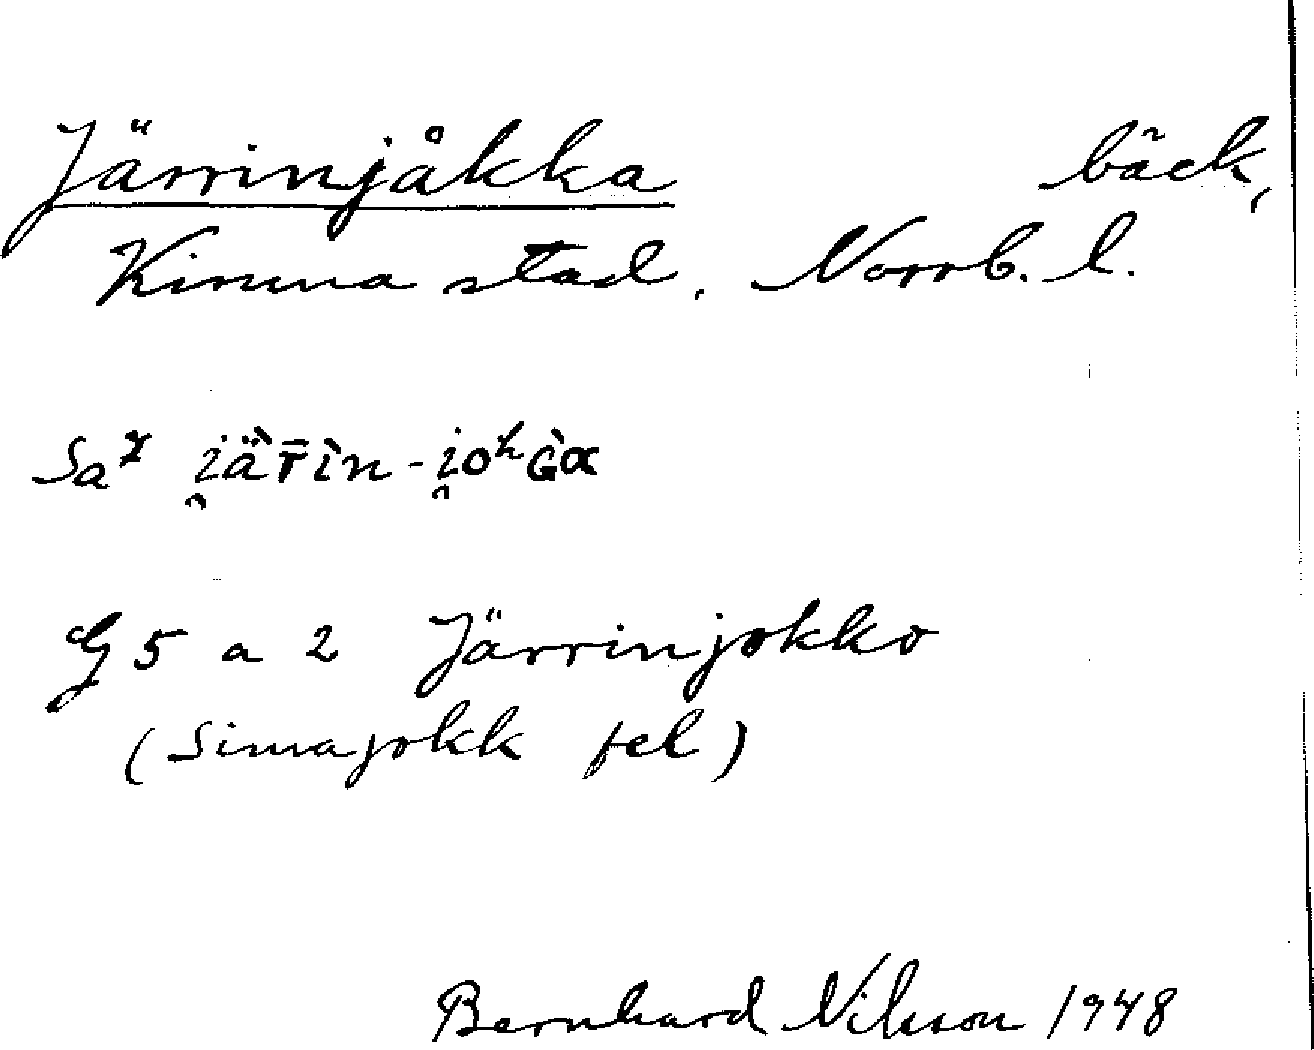 Järrinjåkka bäck,
Kiruna stad, Norrb. l.
Sa
G 5 a 2 Järrinjokko
(Simajokk fel)
Bernhard Nilsson 1948